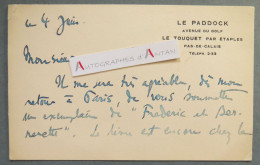 LE PADDOCK
AVENUE DU GOLF
LE TOUQUET PAR ETAPLES
PAS-DE-CALAIS
TELEPH. 5-33
ce 4 Juin.
Monsieur
AUTOGRAPHES D'ANTAN
Il me sera très agréable, dès mon
retour à Paris, de vous soumettre
un exemplaire de "Frédéric et Ber-
nerette". Le dieu est encore chez la